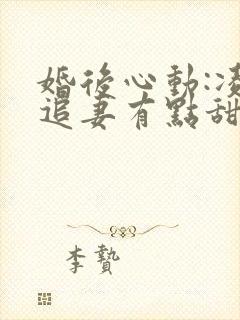 婚後心動:凌
追妻有點甜
李贄